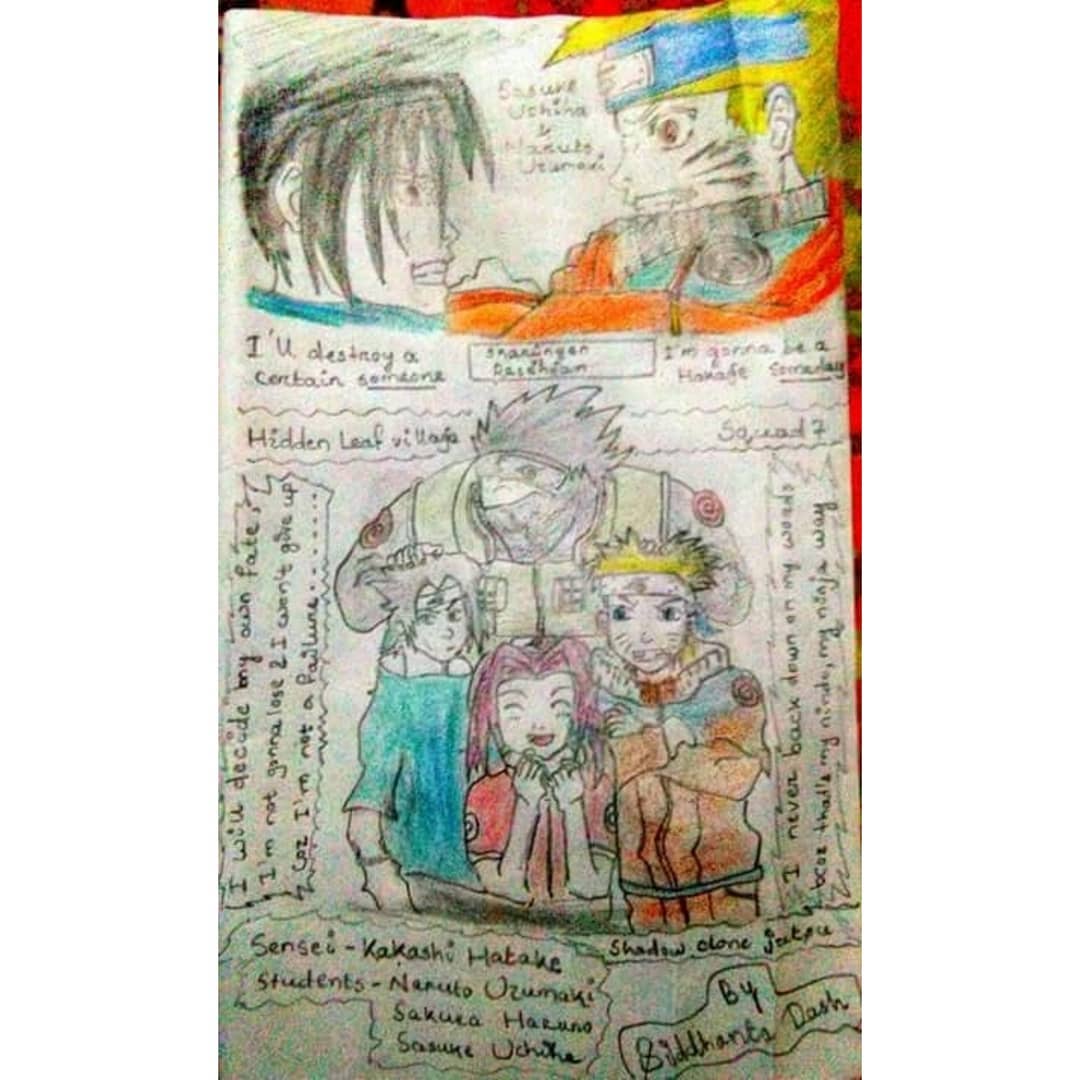 Sasuke
Uchiha
&
Naruto
Uzumaki
I'll destroy a
Certain someone
Sharingan
Rasengan
I'm gonna be a
Hokage Someday
Hidden Leaf village
Squad 7
I will decide my own fate,
I'm not gonna lose & I won't give up
Coz I'm not a failure........
I never back down on my words
becoz that's my nindo, my ninja way
Sensei - Kakashi Hatake
Students - Naruto Uzumaki
Sakura Haruno
Sasuke Uchiha
Shadow clone jutsu
By
Siddhanta Dash